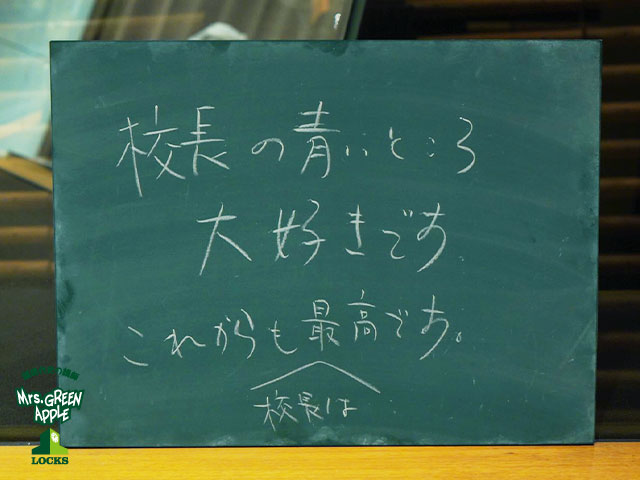 校長の青いところ
大好きです
これからも最高です。
校長は
Mrs. GREEN
APPLE
LOCKS